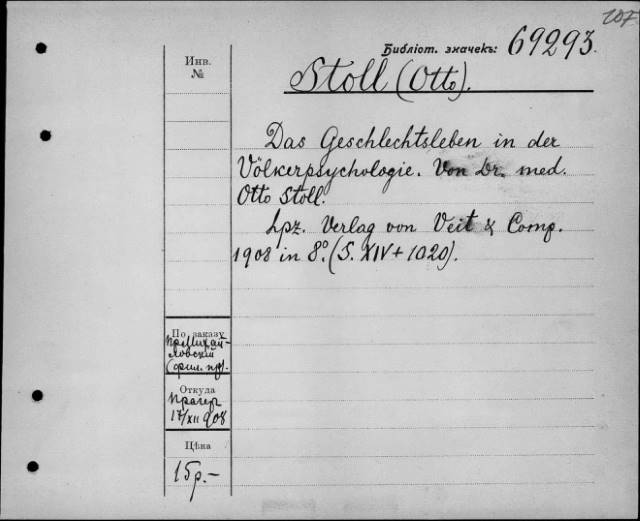 207
Библіот. значекъ: 69293.
Инв.
№
Stoll (Otto).
Das Geschlechtsleben in der
Völkerpsychologie. Von Dr. med.
Otto Stoll.
Lpz. Verlag von Veit & Comp.
1908 in 8º. (S. XIV + 1020).
По заказу
пр. Михай-
ловскій
Откуда
Прагеръ
17/XII 908
Цѣна
15 р. –